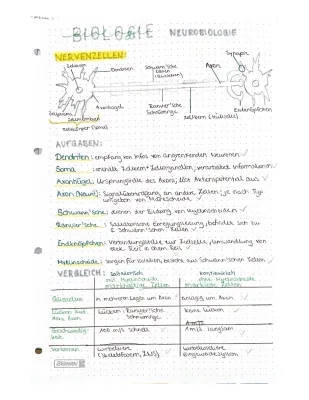 BIOLOGIE NEUROBIOLOGIE
NERVENZELLEN:
Synapse
Zellkern
Dendriten
Schwann'sche
Zellen
Axon
Axonhügel
Ranvier'sche
Schnürringe
Endknöpfchen
Zellkörper (Soma)
AUFGABEN:
Dendriten: empfang von Infos von angrenzenden Neuronen
Soma: enthält Zellkern + Zellorganellen, verarbeitet Informationen
Axonhügel: Ursprungsstelle des Axons, löst Aktionspotential aus
Axon (Neurit): Signalübertragung an andere Zellen, je nach Typ
umgeben von Markscheide
Schwann'sche: dienen der Bildung von Myelinscheiden
Ranvier'sche: saltatorische Erregungsleitung, befindet sich zw.
2 Schwann'schen Zellen
Endknöpfchen: Verbindungsstelle zur Zielzelle, Umwandlung von
elek. Reiz in chem. Reiz
Myelinscheide: sorgen für Isolation, besteht aus Schwann'schen Zellen
VERGLEICH: saltatorisch kontinuierlich
mit Myelinscheide ohne Myelinscheide
markhaltige Zellen marklose Zellen
in mehreren Lagen um Axon einlagig um Axon
Lücken: Ranvier'sche keine Lücken
Schnürringe
Geschwindig-
keit 100 m/s schnell 1 m/s langsam
Vorkommen wirbeltiere wirbellose tiere